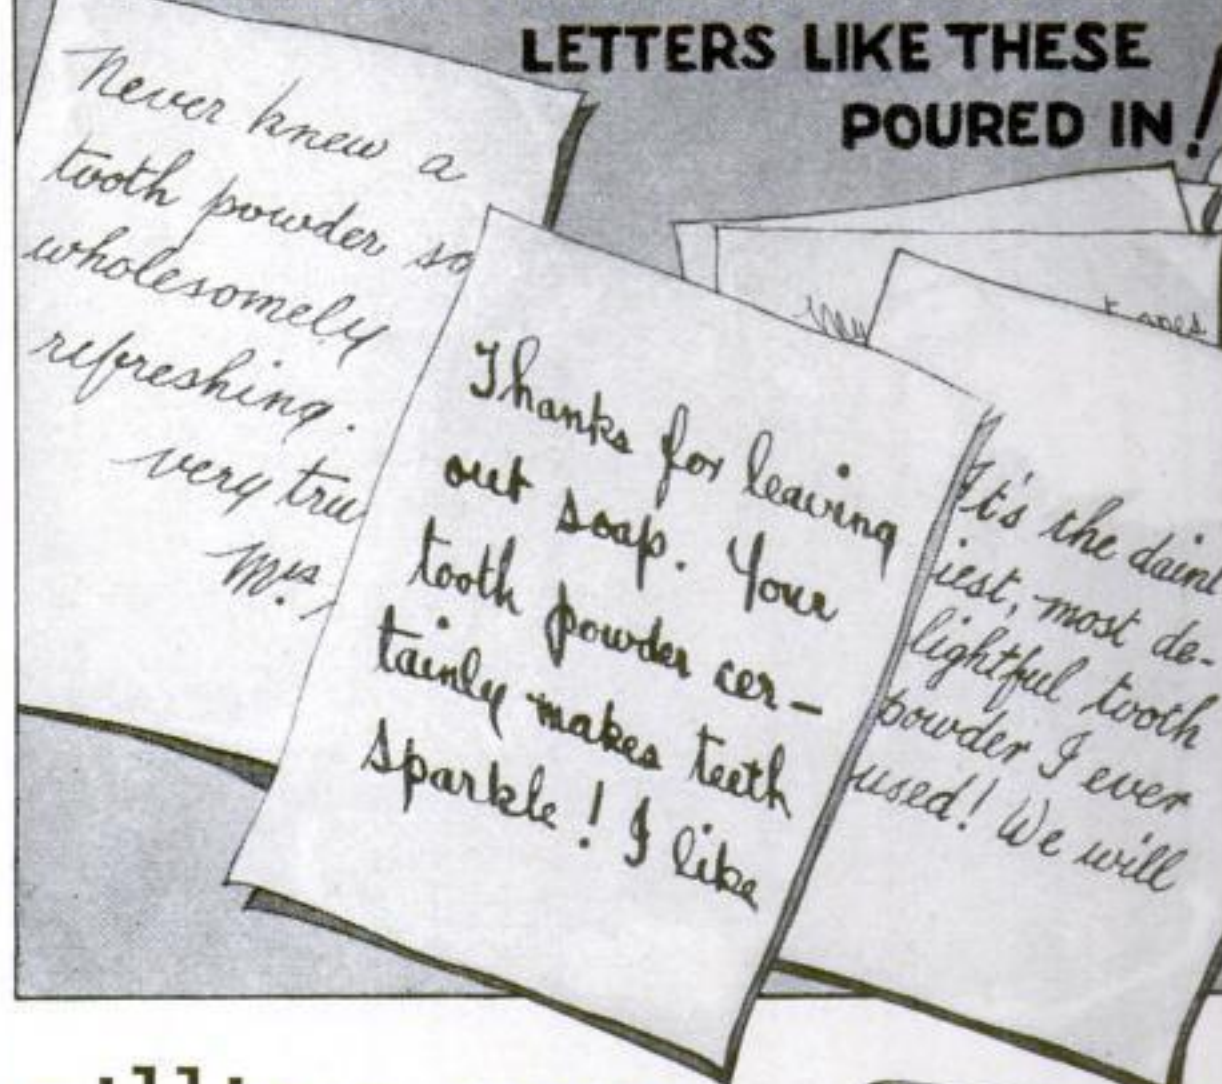 LETTERS LIKE THESE
POURED IN!
Never knew a
tooth powder so
wholesomely
refreshing.
very tru
Mrs.
Thanks for leaving
out soap. Your
tooth powder cer-
tainly makes teeth
sparkle! I like
It's the daint
iest, most de-
lightful tooth
powder I ever
used! We will